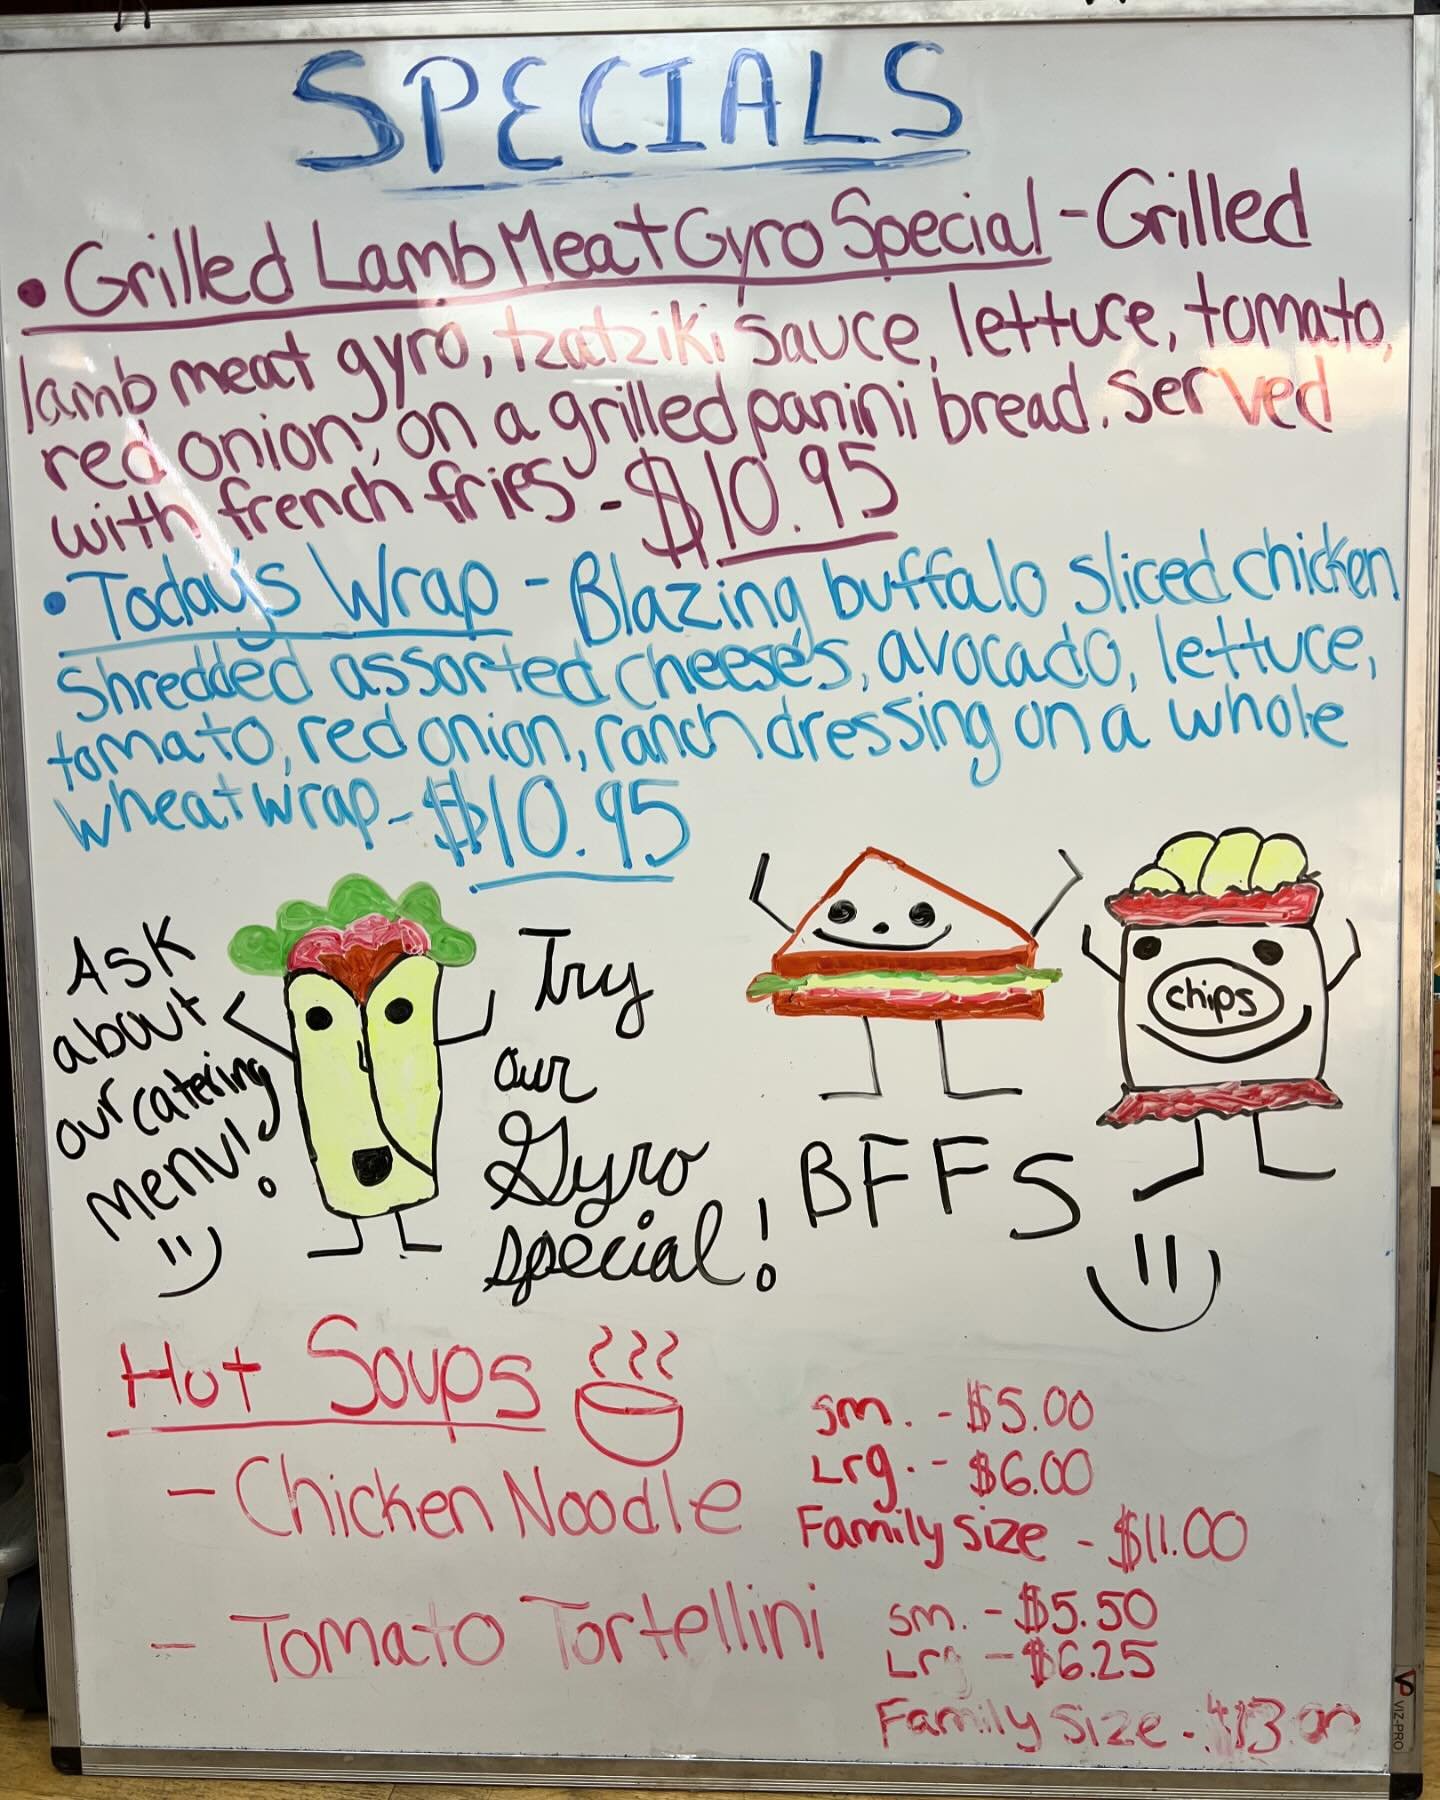 SPECIALS
• Grilled Lamb Meat Gyro Special - Grilled
lamb meat gyro, tzatziki sauce, lettuce, tomato,
red onion, on a grilled panini bread. served
with french fries - $10.95
• Today's Wrap - Blazing buffalo sliced chicken
shredded assorted cheese's, avocado, lettuce,
tomato, red onion, ranch dressing on a whole
wheat wrap - $10.95
Ask
about
our catering
menu!
Try
our
Gyro
special!
chips
BFFS
Hot Soups
- Chicken Noodle
sm. - $5.00
Lrg. - $6.00
Family Size - $11.00
- Tomato Tortellini
sm. - $5.50
Lrg - $6.25
Family Size - $13.00
VIZ-PRO